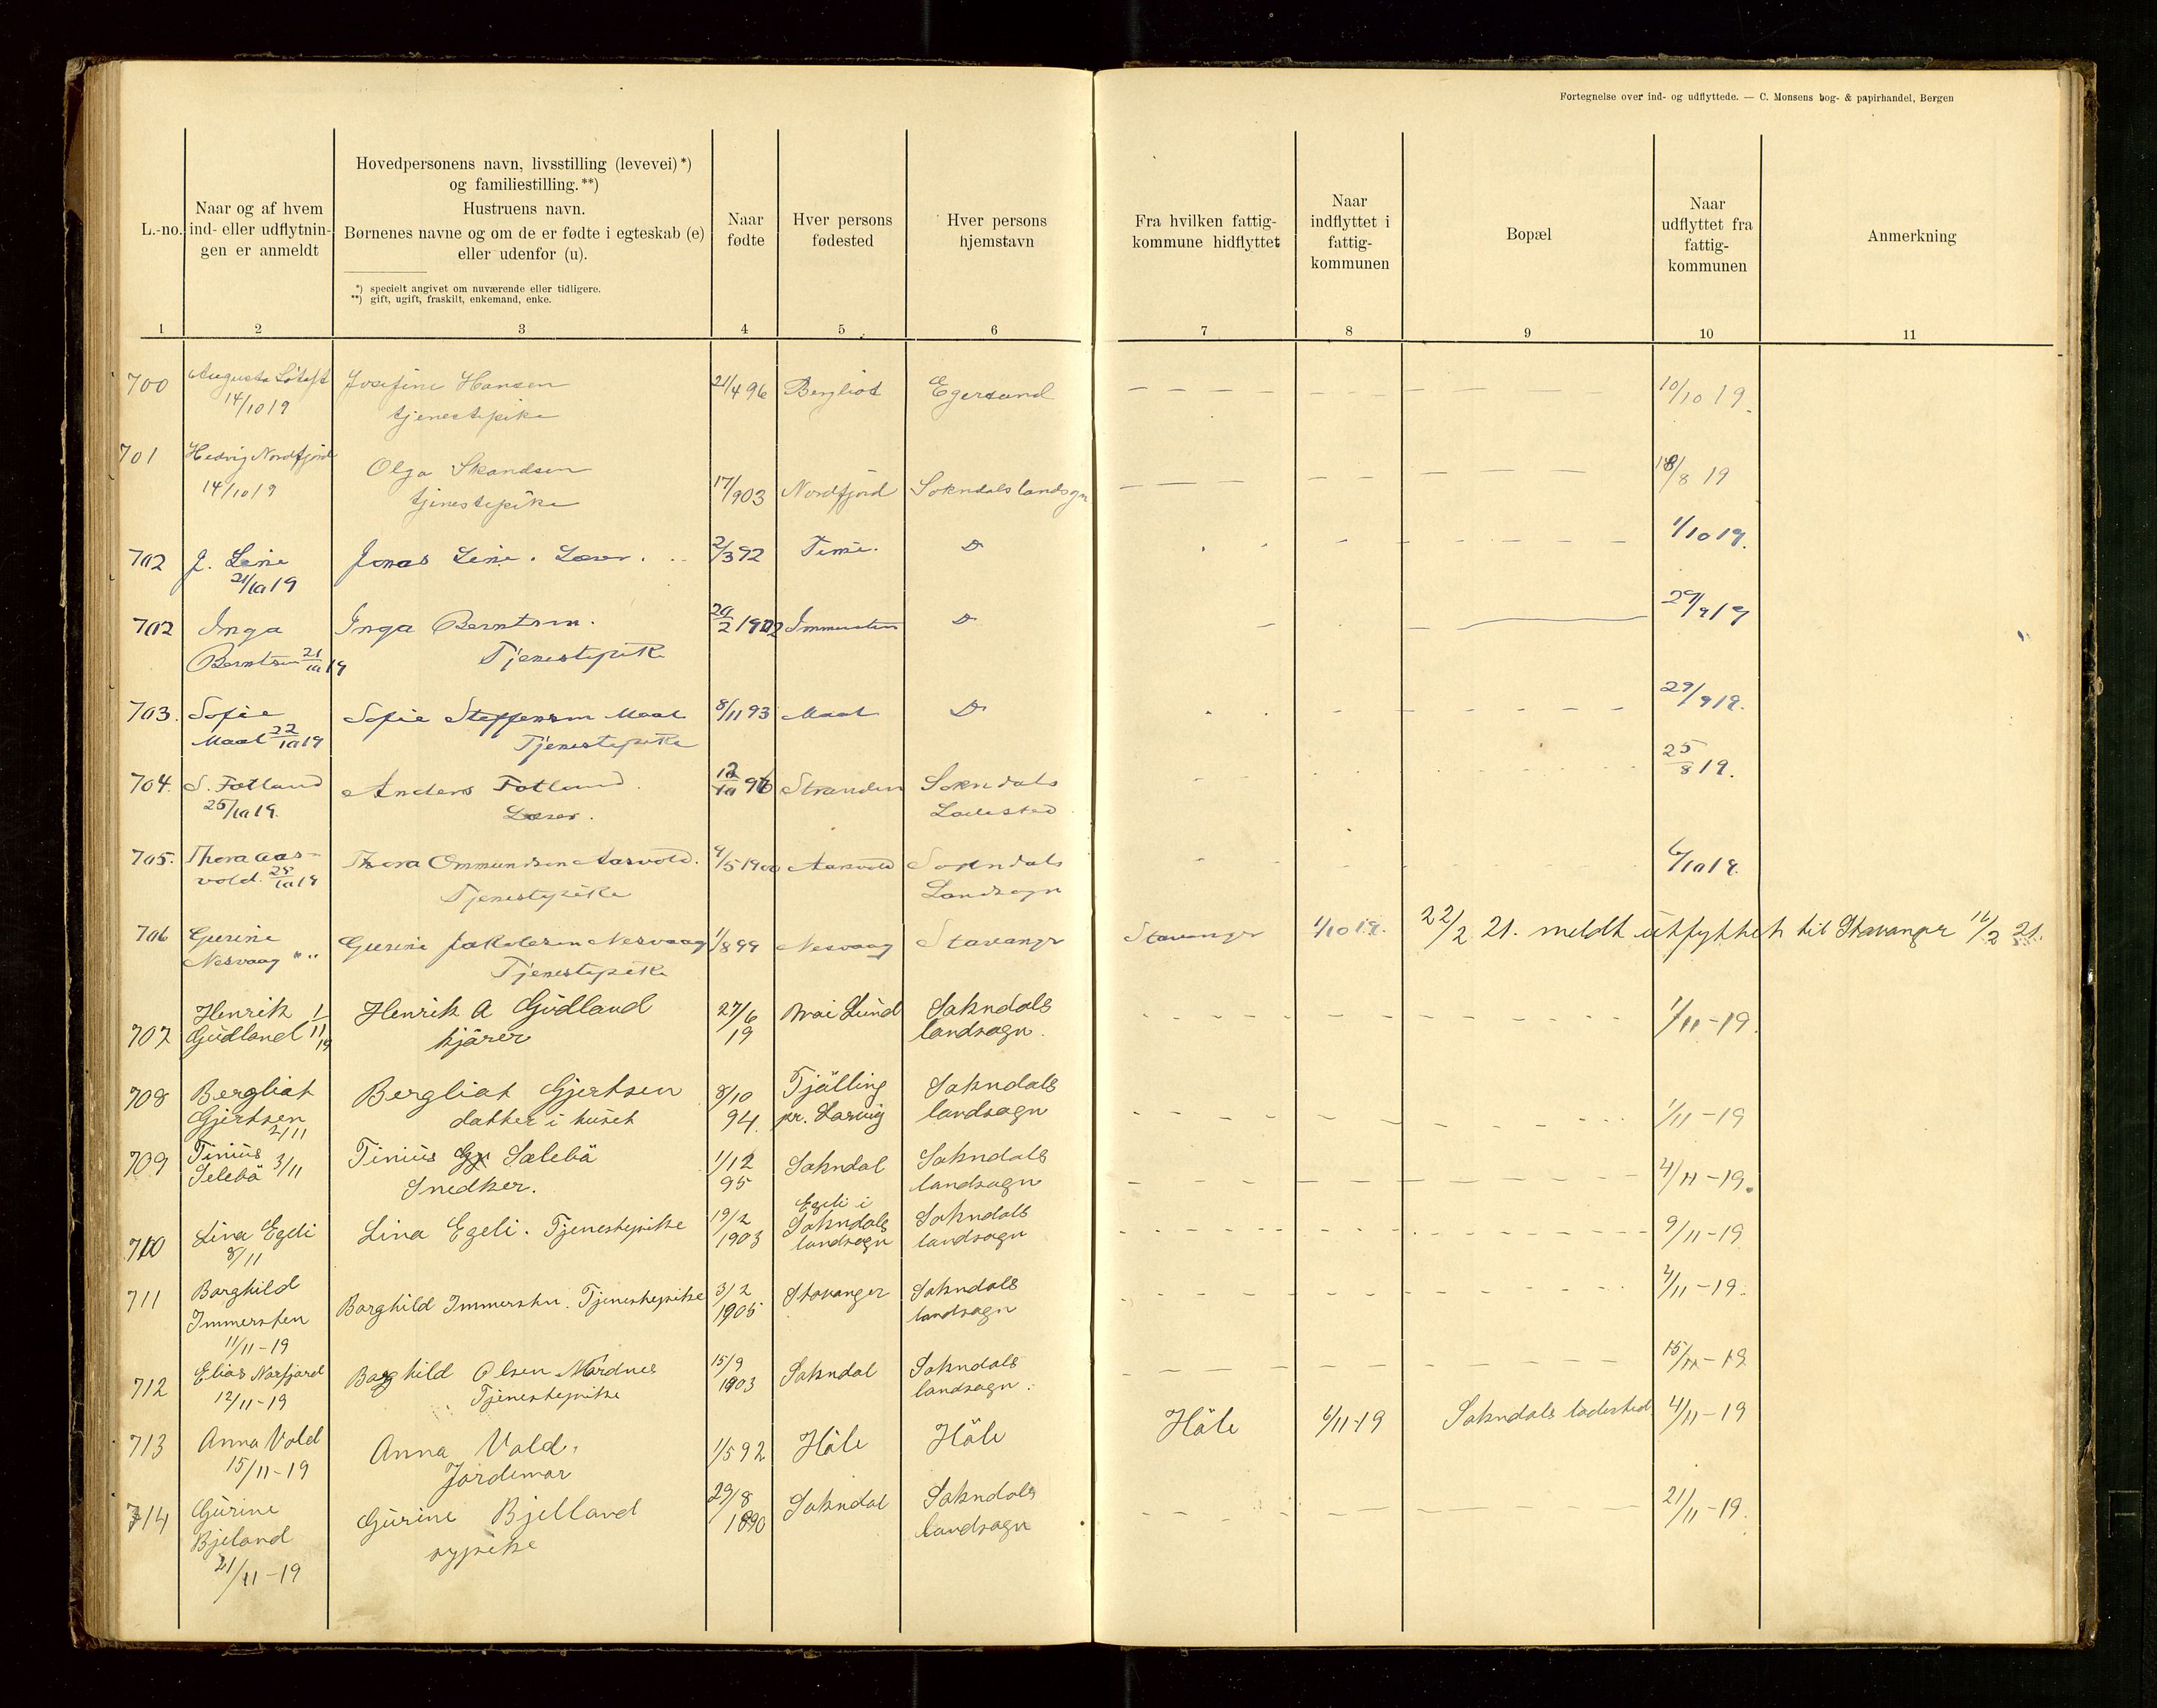 Fortegnelse over ind- og udflyttede. — C. Monsens bog- & papirhandel, Bergen
L.-no.
Naar og af hvem
ind- eller udflytnin-
gen er anmeldt
Hovedpersonens navn, livsstilling (levevei)*)
og familiestilling.**)
Hustruens navn.
Børnenes navne og om de er fødte i egteskab (e)
eller udenfor (u).
*) specielt angivet om nuværende eller tidligere.
**) gift, ugift, fraskilt, enkemand, enke.
Naar
fødte
Hver persons
fødested
Hver persons
hjemstavn
Fra hvilken fattig-
kommune hidflyttet
Naar
indflyttet i
fattig-
kommunen
Bopæl
Naar
udflyttet fra
fattig-
kommunen
Anmerkning
1 2 3 4 5 6 7 8 9 10 11
700 Augusta Josefine Hansen 21/4 96 Bergliot Egersund — — — — — — 10/10 19.
14/10 19 tjenestepike
701 Hedvig Nordfjord Olga Skandsen 17/903 Nordfjord Sokndals landsogn — — — — — — /8 19
14/10 19 tjenestepike
702 J. Leine Jonas Leine. Læser. 2/3 92 Time. D 1/10 19.
21/10 19
702 Inga Inga Berntsen. 20/2 1902 Immersten D 29/9 19
Berntsen 21/10 19 Tjenestepike
703. Sofie Sofie Steffensen Maal 8/11 93 Maal D 29/9 19.
Maal 22/10 19 Tjenestepike
704. S. Fotland Anders Fotland. 12/10 96 Stranden Sokndals 25/8 19.
25/10 19. Læser. Ladested
705. Thora Aas- Thora Ommundsen Aasvold. 4/5 1900 Aasvold Sokndals 6/10 19.
vold. 28/10 19 Tjenestepike Landsogn
706 Gurine Gurine Jakobsen Nesvaag 1/8 99 Nesvaag Stavanger Stavanger 1/10 19. 22/2 21. meldt utflyttet til Stavanger 12/2 21.
Nesvaag " " Tjenestepike
707 Henrik 1/11 19 Henrik A Gudland 27/6 Moi Lund Sokndals 1/11-19.
Gudland kjører 19 landsogn.
708 Bergliot Bergliot Gjertsen 8/10 Tjölling Sokndals 1/11-19
Gjertsen datter i huset 94. pr. Larvig landsogn
2/11
709 Tinius Tinius Gj Sælebö 1/12 Sokndal Sokndals 4/11-19.
Selebö 3/11 Snedker. 95 landsogn
710 Lina Egeli Lina Egeli. Tjenestepike 19/2 Egeli i Sokndals 9/11-19
8/11 1903 Sokndals landsogn
landsogn
711 Borghild Borghild Immersten. Tjenestepike 3/2 Stavanger Sokndals 4/11-19.
Immersten 1905 landsogn
11/11-19
712 Elias Norfjord Borghild Olsen Nordnes 15/9 Sokndal Sokndals 15/11-19
12/11-19 Tjenestepike 1903 landsogn.
713 Anna Vold Anna Vold, 1/5 92 Höle Höle Höle 4/11-19 Sokndals ladested 4/11-19
15/11-19 Jordemor
714 Gurine Gurine Bjelland 29/8 Sokndal Sokndals 21/11-19.
Bjeland sypike 1890 landsogn
21/11-19